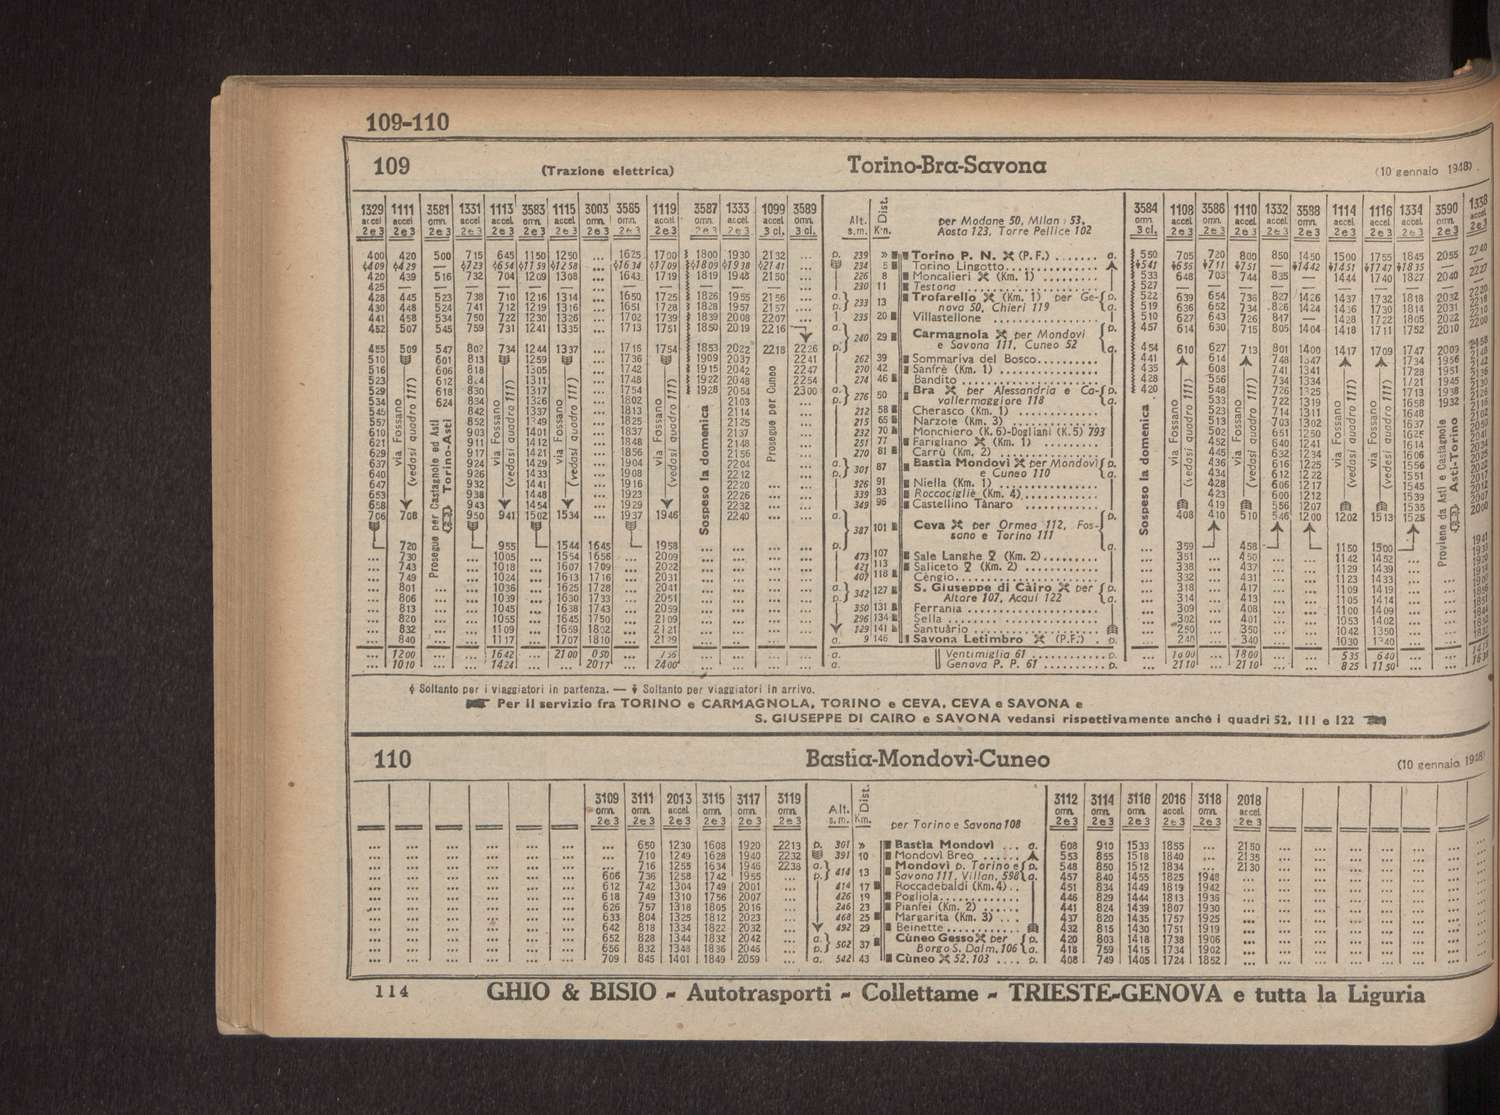 109-110
109 (Trazione elettrica) Torino-Bra-Savona (10 gennaio 1948)
1329 1111 3581 1331 1113 3583 1115 3003 3585 1119 3587 1333 1099 3589 Alt. Dist. 3584 1108 3586 1110 1332 3588 1114 1116 1334 3590 1338
accel accel omn. accel accel omn. accel omn. omn. accel omn. accel accel omn. s.m. Km. omn. accel omn. accel accel omn. accel accel accel omn.
2e3 2e3 2e3 2e3 2e3 2e3 2e3 2e3 2e3 2e3 2e3 2e3 3 cl. 3 cl. 3 cl. 2e3 2e3 2e3 2e3 2e3 2e3 2e3 2e3 2e3 2e3
per Modane 50, Milano 53,
Aosta 123, Torre Pellice 102
400 420 500 715 645 1150 1250 ... 1625 1700 1800 1930 2132 ... p. 239 » Torino P. N. (P.F.) ....... a. 550 705 720 800 850 1450 1500 1755 1845 2055 2240
409 429 — 723 654 1159 1258 ... 1634 1709 1809 1938 2141 ... 234 5 Torino Lingotto 541 655 711 751 — 1442 1451 1747 1835 ... —
420 439 516 732 704 1209 1308 ... 1643 1719 1819 1948 2150 ... 226 8 Moncalieri (Km. 1) 533 648 703 744 835 — 1444 1740 1827 2040 2227
425 230 11 Testona 527
428 445 523 738 710 1216 1314 ... 1650 1725 1826 1955 2156 ... a. 233 13 Trofarello (Km. 1) per Ge- p. 522 639 654 736 827 1426 1437 1732 1818 2032 2220
430 448 524 741 712 1219 1316 ... 1651 1728 1828 1957 2157 ... p. nova 50, Chieri 119 a. 519 636 652 734 826 1424 1436 1730 1814 2031 2218
441 458 534 750 722 1230 1326 ... 1702 1739 1839 2008 2207 ... 235 20 Villastellone 510 627 643 726 817 — 1428 1722 1805 2022 2210
452 507 545 759 731 1241 1335 ... 1713 1751 1850 2019 2216 a. 240 29 Carmagnola per Mondovì p. 457 614 630 715 805 1404 1418 1711 1752 2010 2200
455 509 547 802 734 1244 1337 ... 1716 1754 1853 2022 2218 2226 p. e Savona 111, Cuneo 52 a. 454 610 627 713 801 1400 1417 1709 1747 2009
510 601 813 1259 ... 1736 1909 2037 2241 262 39 Sommariva del Bosco 441 614 748 1347 1734 1956
516 606 818 1305 ... 1742 1915 2042 2247 270 42 Sanfrè (Km. 1) 435 608 741 1341 1728 1951
523 612 824 1311 ... 1748 1922 2048 2254 274 46 Bandito 428 556 734 1334 1721 1945
529 618 830 1317 ... 1754 1928 2054 2300 a. 276 50 Bra per Alessandria e Ca- p. 420 548 726 1326 1713 1938
534 624 834 1326 ... 1802 2103 .... p. vallermaggiore 118 a. 533 722 1319 1658 1932
545 842 1337 ... 1813 2114 ... 212 58 Cherasco (Km. 1) 523 714 1311 1648
557 852 1349 ... 1825 2125 ... 215 65 Narzole (Km. 3) 513 703 1302 1637
610 903 1401 ... 1837 2137 ... 232 70 Monchiero (K. 6)-Dogliani (K. 5) 793 502 651 1250 1625
621 911 1412 ... 1848 2148 ... 251 77 Farigliano (Km. 1) 452 640 1241 1614
629 917 1421 ... 1856 2156 ... 270 81 Carrù (Km. 2) 445 632 1234 1606
637 924 1429 ... 1904 2204 ... a. 301 87 Bastìa Mondovì per Mondovì p. 436 616 1225 1556
640 926 1433 ... 1908 2212 ... p. e Cuneo 110 a. 434 612 1222 1551
647 932 1441 ... 1916 2220 ... 326 91 Niella (Km. 1) 428 606 1217 1545
653 938 1448 ... 1923 2226 ... 339 93 Roccaciglié (Km. 4) 423 600 1212 1539
658 943 1454 ... 1929 2232 ... 349 96 Castellino Tànaro 419 556 1207 1535
706 708 950 941 1502 1534 ... 1937 1946 2240 ... a. 387 101 Ceva per Ormea 112, Fos- p. 408 410 510 546 1200 1202 1513 1525
sano e Torino 111
via Fossano (vedasi quadro 111)
Prosegue per Castagnole ed Asti
Torino-Asti
Sospeso la domenica
Prosegue per Cuneo
Sospeso la domenica
Proviene da Asti e Castagnole
Asti-Torino
... 720 955 1544 1645 1958 ... p. a. ... 359 458 1150 1500
... 730 1005 1554 1656 2009 ... 473 107 Sale Langhe (Km. 2) ... 351 450 1142 1452
... 743 1018 1607 1709 2022 ... 421 113 Saliceto (Km. 2) ... 338 437 1129 1439
... 749 1024 1613 1716 2031 ... 407 118 Cèngio ... 332 431 1123 1433
... 801 1036 1625 1728 2041 ... a. 342 127 S. Giuseppe di Càiro per p. ... 318 417 1109 1419
... 806 1039 1630 1733 2051 ... p. Altare 107, Acqui 122 a. ... 314 413 1105 1414
... 813 1045 1638 1743 2059 ... 350 131 Ferrania ... 309 408 1100 1409
... 820 1055 1645 1750 2109 ... 296 134 Sella ... 302 401 1053 1402
... 832 1109 1659 1802 2121 ... 129 141 Santuàrio ... 250 350 1042 1350
... 840 1117 1707 1810 2129 ... a. 9 146 Savona Letimbro (P.F.) p. ... 240 340 1030 1340
... 1200 ... 1642 ... 2100 050 ... ... a. Ventimiglia 61 p. ... 1800 ... 535 640
... 1010 ... 1424 ... ... 2017 ... 2400 ... a. Genova P. P. 61 p. ... 2110 ... 2110 ... 825 1150
Soltanto per i viaggiatori in partenza. — Soltanto per viaggiatori in arrivo.
Per il servizio fra TORINO e CARMAGNOLA, TORINO e CEVA, CEVA e SAVONA e
S. GIUSEPPE DI CAIRO e SAVONA vedansi rispettivamente anche i quadri 52, 111 e 122
110 Bastia-Mondovì-Cuneo (10 gennaio 1948)
3109 3111 2013 3115 3117 3119 Alt. Dist. 3112 3114 3116 2016 3118 2018
omn. omn. accel omn. omn. omn. s.m. Km. omn. omn. omn. accel omn. accel
2e3 2e3 2e3 2e3 2e3 2e3 per Torino e Savona 108 2e3 2e3 2e3 2e3 2e3 2e3
... 650 1230 1608 1920 2213 p. 301 » Bastìa Mondovì ... a. 608 910 1533 1855 ... 2150
... 710 1249 1628 1940 2232 391 10 Mondovì Breo ...... 553 855 1518 1840 ... 2135
... 716 1255 1634 1946 2238 a. 414 13 Mondovì p. Torino e p. 548 850 1512 1834 ... 2130
606 736 1258 1742 1955 ... p. Savona 111, Villan. 598 a. 457 840 1455 1825 1948 ...
612 742 1304 1749 2001 ... 414 17 Roccadebaldi (Km. 4) .. 451 834 1449 1819 1942 ...
618 749 1310 1756 2007 ... 426 19 Pogliola 446 829 1444 1813 1936 ...
626 757 1318 1805 2016 ... 246 23 Pianfei (Km. 2) ...... 441 824 1439 1807 1930 ...
633 804 1325 1812 2023 ... 468 25 Margarita (Km. 3) ... 437 820 1435 1757 1925 ...
642 818 1334 1822 2032 ... 492 29 Beinette 432 815 1430 1751 1919 ...
652 828 1344 1832 2042 ... a. 502 37 Cùneo Gesso per p. 420 803 1418 1738 1906 ...
656 832 1348 1836 2046 ... p. Borgo S. Dalm. 106 a. 418 759 1415 1734 1902 ...
709 845 1401 1849 2059 ... a. 542 43 Cùneo 52, 103 .... p. 408 749 1405 1724 1852 ...
114 GHIO & BISIO - Autotrasporti - Collettame - TRIESTE-GENOVA e tutta la Liguria